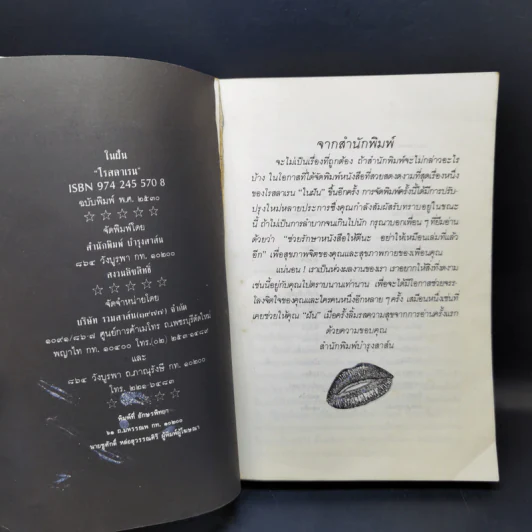 ในฝัน
"โรสลาเรน"
ISBN 974 245 570 8
ฉบับพิมพ์ พ.ศ. ๒๕๓๐
☆ ☆ ☆ ☆ ☆
จัดพิมพ์โดย
สำนักพิมพ์ บำรุงสาส์น
๘๖๔ วังบูรพา กท. ๑๐๒๐๐
สงวนลิขสิทธิ์
☆ ☆ ☆ ☆ ☆
จัดจำหน่ายโดย
บริษัท รวมสาส์น (๑๙๗๗) จำกัด
๑๐๙๑/๑๖๗-๘ ศูนย์การค้าเมโทร ถ.เพชรบุรีตัดใหม่
พญาไท กท. ๑๐๔๐๐ โทร.(๐๒)
และ
๘๖๔ วังบูรพา ถ.ภาณุรังษี กท. ๑๐๒๐๐
โทร. ๒๒๑๖๔๘๓
☆ ☆ ☆ ☆ ☆
พิมพ์ที่ อักษรพิทยา
๖๑ ถ.มหรรณพ กท. ๑๐๒๐๐
นายชูศักดิ์ หล่อสุวรรณศิริ ผู้พิมพ์ผู้โฆษณา
จากสำนักพิมพ์
จะไม่เป็นเรื่องที่ถูกต้อง ถ้าสำนักพิมพ์จะไม่กล่าวอะไร
บ้าง ในโอกาสที่ได้จัดพิมพ์หนังสือที่สวยสดงดงามที่สุดเรื่องหนึ่ง
ของโรสลาเรน "ในฝัน" ขึ้นอีกครั้ง การจัดพิมพ์ครั้งนี้ได้มีการปรับ-
ปรุงใหม่หลายประการซึ่งคุณกำลังสัมผัสรับทราบอยู่ในขณะ
นี้ ถ้าไม่เป็นการลำบากจนเกินไปนัก กรุณาบอกเพื่อนๆที่ยืมอ่าน
ด้วยว่า "ช่วยรักษาหนังสือให้ดีนะ อย่าให้เหมือนเล่มที่แล้ว
อีก" เพื่อสุขภาพจิตของคุณและสุขภาพกายของเพื่อนคุณ
แน่นอน ! เราเป็นห่วงผลงานของเรา เราอยากให้สิ่งที่งดงาม
เช่นนี้อยู่กับคุณไปตราบนานเท่านาน เพื่อจะได้มีโอกาสช่วยจรร-
โลงจิตใจของคุณและใครคนหนึ่งอีกหลาย ๆ ครั้ง เสมือนหนึ่งที่
เคยช่วยให้คุณ "ฝัน" เมื่อครั้งลิ้มรสความสุขจากการอ่านครั้งแรก
ด้วยความขอบคุณ
สำนักพิมพ์บำรุงสาส์น